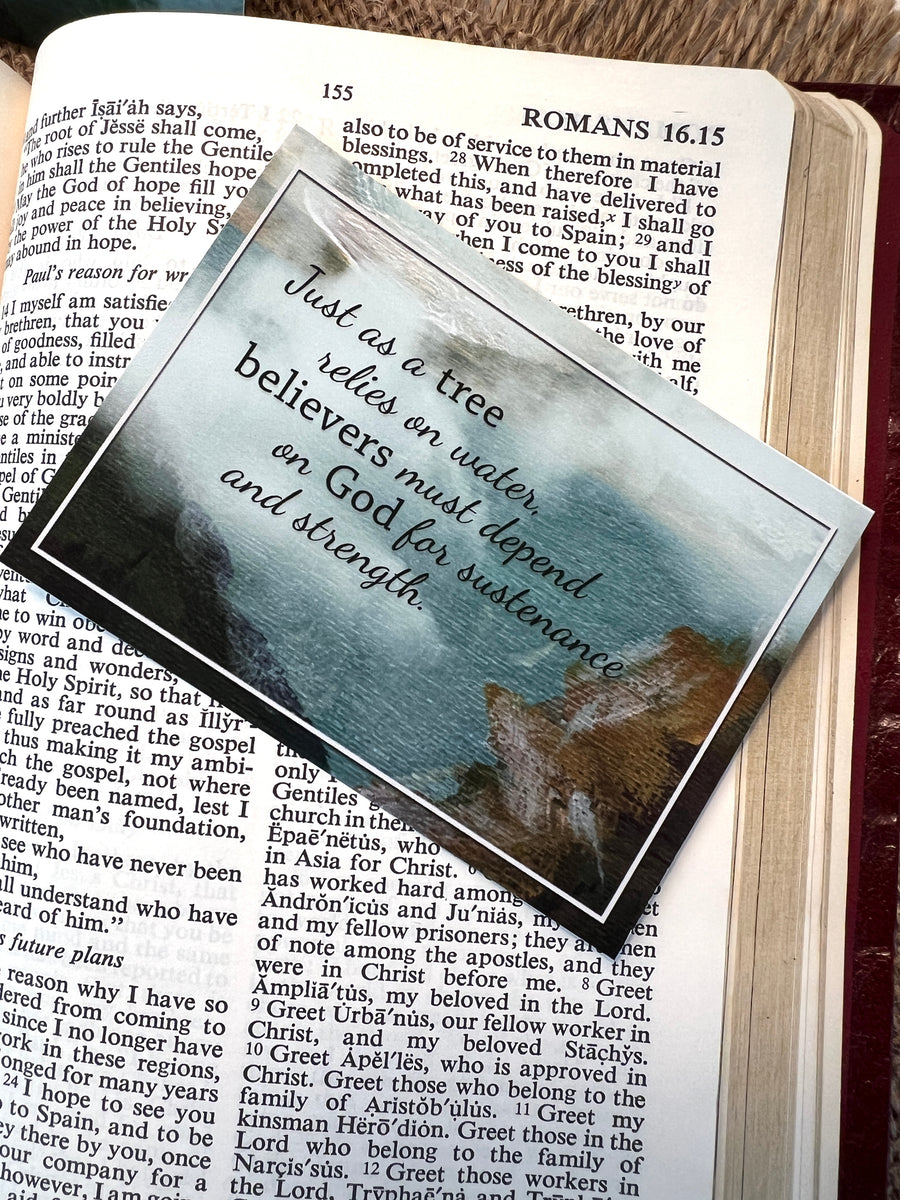 155
ROMANS 16.15
further Īṣāi′áh says,
"The root of Jĕssë shall come,
he who rises to rule the Gentile
in him shall the Gentiles hope
May the God of hope fill
joy and peace in believing,
the power of the Holy
abound in hope.
Paul's reason for
14 I myself am satisfie
brethren, that you
of goodness, filled
and able to instr
on some poin
very boldly b
of the gra
a ministe
in
of G
Genti
what
to win
by word and
signs and wonders,
Holy Spirit, so that
and as far round as Illÿr
fully preached the gospel
thus making it my ambi-
the gospel, not where
already been named, lest I
other man's foundation,
written,
see who have never been
him,
understand who have
heard of him."
future plans
reason why I have so
from coming to
since I no longer have
work in these regions,
longed for many years
24 I hope to see you
to Spain, and to be
there by you, once
your company for a
however, I am
also to be of service to them in material
blessings. 28 When therefore I have
completed this, and have delivered to
what has been raised,x I shall go
way of you to Spain; 29 and I
when I come to you I shall
of the blessingy of
brethren, by our
the love of
with me
Just as a tree
relies on water,
believers must depend
on God for sustenance
and strength.
only
Gentiles
church in
Ëpaē′nëtùs, who
in Asia for Christ.
has worked hard among
Ăndrŏn′icùs and Ju′niàs,
and my fellow prisoners; they are men
of note among the apostles, and they
were in Christ before me. 8 Greet
Ămpliā′tùs, my beloved in the Lord.
9 Greet Ùrbā′nùs, our fellow worker in
Christ, and my beloved Stāchÿs.
10 Greet Ȧpĕl′lës, who is approved in
Christ. Greet those who belong to the
family of Aristŏb′ùlùs. 11 Greet my
kinsman Hërō′diòn. Greet those in the
Lord who belong to the family of
Narçis′sùs. 12 Greet those workers in
the Lord,